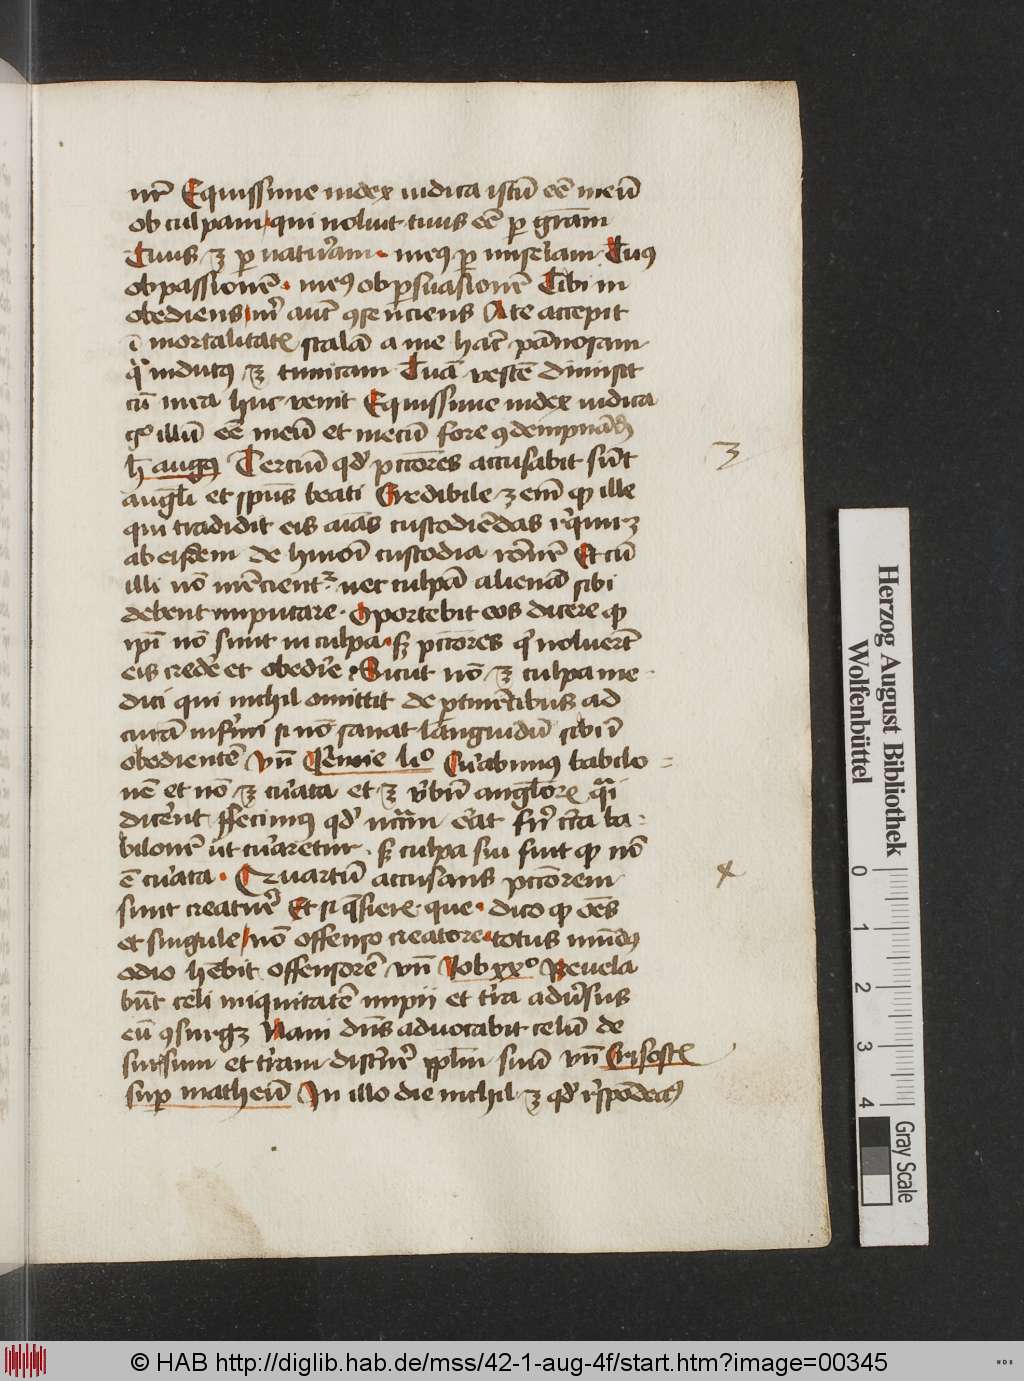 nr̄ Equissime iudex iudica istū eē meū
ob culpam qui noluit tuus eē p gr̄am
Tuus ꝫ p natur̄am · meꝰ p miseriam Tuꝰ
ob passionē · meꝰ ob psuasionē Tibi in
obediens m̄ aut̄ ꝯsenciens A te accepit
ī mortalitatꝭ stolā a me hāc pānosam
qͣ indutꝰ ꝫ tunicam Tuā vestē dimisit
cū mea huc venit Equissime iudex iudica
gͦ illū eē meū et mecū fore ꝯdempnād
h̄ augꝰ Terciū qd̓ pctōres accusabit sūt
angl̄i et spūs beati Credibile ꝫ em̄ ꝙ ille
qui tradidit eis aīas custodiēdas r̓quirꝫ
ab eisdem de hmōi custodia rōnē Et cū
illi nō mēcientꝛ nec culpā alienā sibi
debent imputare · Oportebit eos dicere ꝙ
ipī nō sunt in culpa · sꝫ pctōres qͥ noluerūt
eis crede̓ et obedir̓e · Sicut nō ꝫ culpa me
dici qui nichil omittit de ptinētibus ad
curā infirmi si nō sanat languidū sibi ī
obedientē vn̄ Jer̓mie li° Cur̓abimus babilo
nē et nō ꝫ cur̓ata et ꝫ v̓bū anglorꝝ qͣi
dicer̓ent ffecimꝰ qd̓ nr̄am er̓at fīr c̓ca ba
bilonē ut cur̓aretur · sꝫ culpa sui fuit ꝙ nō
ē cur̓ata · Quartū accusans pctōrem
sunt creatur̓e Et si q̄sierꝭ que · dico ꝙ oēs
et singule nō offenso creatore · totus mūdꝰ
odio hēbit offensorē vn̄ Job xx° Revela
būt celi iniquitatē impii et tr̓ra adv̓sus
eū ꝯsurgꝫ Nam dn̄s advocabit celū de
sursum et tr̓ram discer̓nē pplm̄ suū vn̄ Crisostꝭ
sup matheū In illo die nichil ꝫ qd̓ r̓spōdeaꝰ
3
4
Herzog August Bibliothek
Wolfenbüttel
0
1
2
3
4
Gray Scale
© HAB http://diglib.hab.de/mss/42-1-aug-4f/start.htm?image=00345